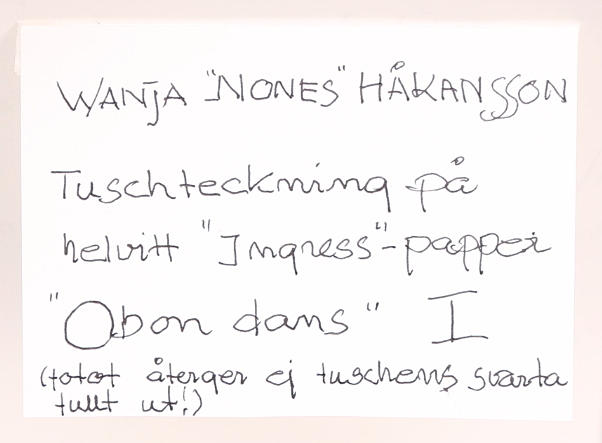 WANJA "NONES" HÅKANSSON
Tuschteckning på
helvitt "Ingress"-papper
"Obon dans" I
(fotot återger ej tuschens svarta
fullt ut!)